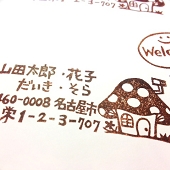 1-2-3-707
Welc
山田太郎・花子
だいき・そら
460-0008 名古屋市
栄1-2-3-707